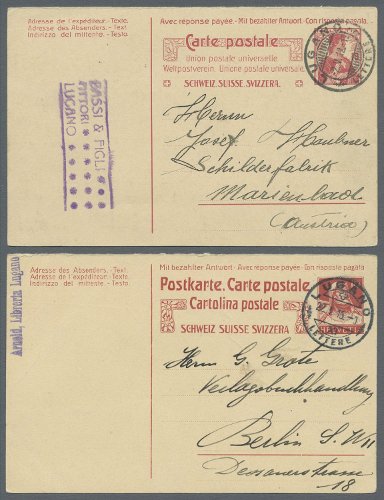 Adresse de l'expéditeur. - Texte.
Adresse des Absenders. - Text.
Indirizzo del mittente. - Testo.
Avec réponse payée. - Mit bezahlter Antwort. - Con risposta pagata.
Carte postale
Union postale universelle
Weltpostverein. Unione postale universale.
SCHWEIZ. SUISSE. SVIZZERA.
LUGANO
PASSI & FIGLI
PITTORI
LUGANO
Herrn
Josef Haubner
Schilderfabrik
Marienbad
(Austria)
Adresse des Absenders. - Text.
Adresse de l'expéditeur. - Texte.
Indirizzo del mittente. - Testo.
Mit bezahlter Antwort. - Avec réponse payée. - Con risposta pagata
Postkarte. Carte postale
Cartolina postale
SCHWEIZ SUISSE SVIZZERA
LUGANO
LETTERE
HELVETIA
Arnold, Libreria Lugano
Herrn G. Grote
Verlagsbuchhandlung
Berlin S. W 11
Dessauerstrasse
18